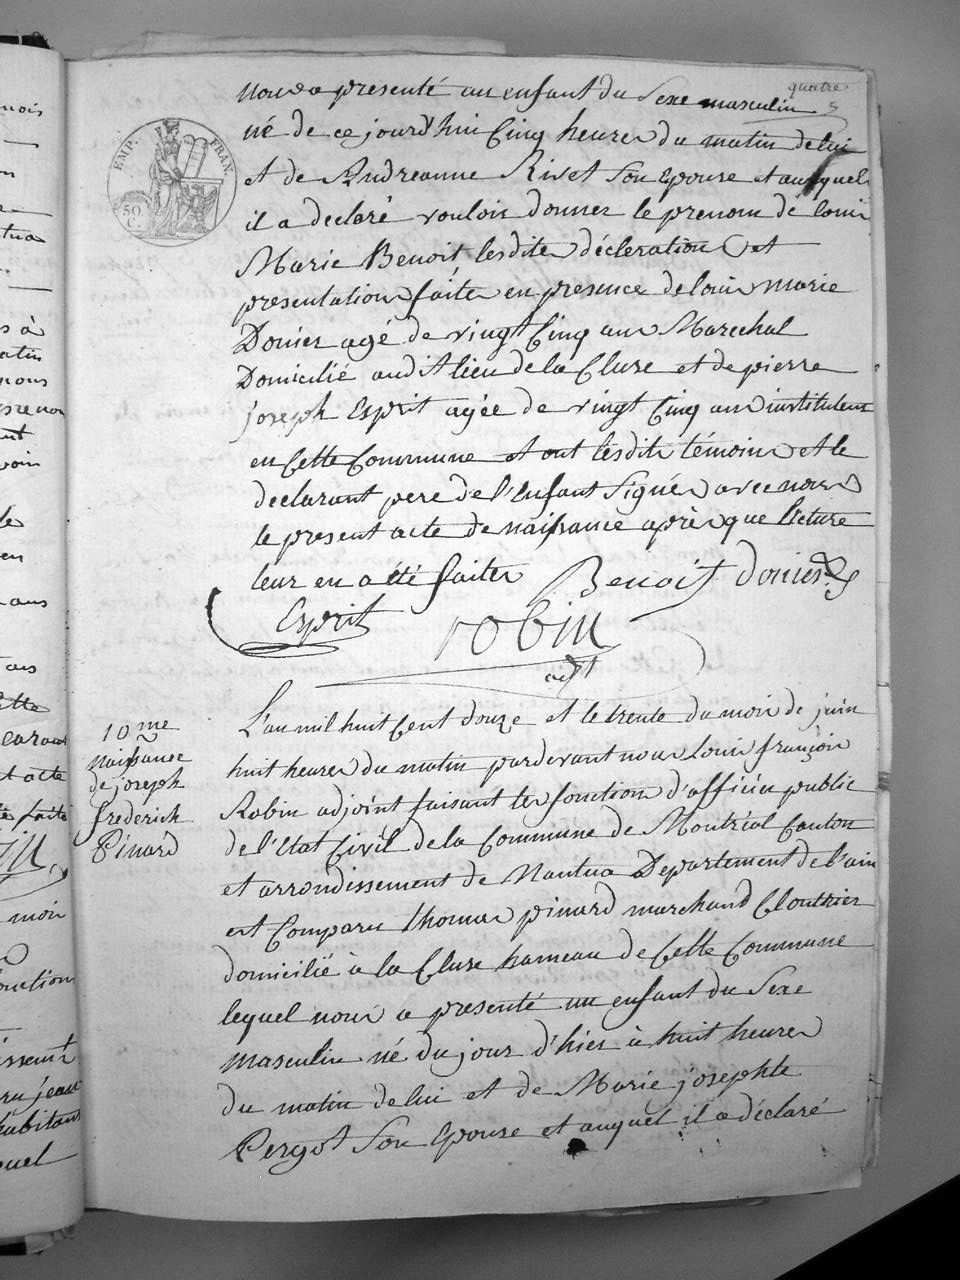 quatre
5
nous a presenté un enfant du Sexe masculin
né de ce jourd'hui Cinq heures du matin de lui
et de Andreanne Rivet Son Epouse et auquel
il a declaré vouloir donner le prenom de loui
Marie Benoit lesdites décleration et
presentation faites en presence de louis marie
Donier agé de vingt Cinq ans Marechal
Domicilié audit lieu de la Cluse et de pierre
joseph Esprit agée de vingt Cinq ans instituteur
en Cette Commune et ont lesdits témoins et le
declarant pere de l'Enfant Signés avec nous
le present acte de naissance après que lecture
leur en a été faites Benoit donier
Esprit robin
adjt
EMP. FRAN.
50 C.
10me
naissance
de joseph
frederich
Pinard
L'an mil huit Cent douze et le trente du mois de juin
huit heures du matin pardevant nous louis françois
Robin adjoint faisant les fonctions d'officier public
de l'Etat Civil de la Commune de Montréal Canton
et arrondissement de Nantua Departement de l'ain
est Comparu thomas pinard marchand Clouthier
domicilié à la Cluse hameau de Cette Commune
lequel nous a presenté un enfant du Sexe
masculin né du jour d'hier à huit heures
du matin de lui et de Marie josephte
Pergot Son Epouse et auquel il a déclaré